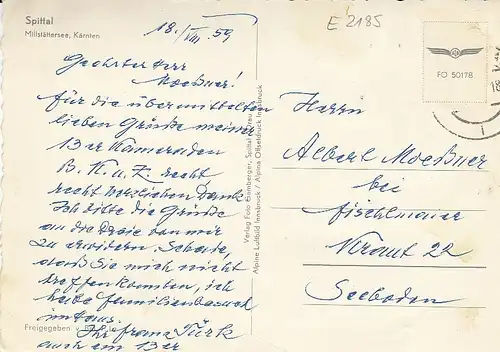 Spittal
Millstättersee, Kärnten
18./VIII. 59
E 2185
FO 50178
Geehrter Herr
Moeßner!
Für die übermittelten
lieben Grüße meiner
13er Kameraden
B. K. u. Z. recht
recht herzlichen Dank
Ich bitte die Grüße
an die von mir
zu erwidern. Schade,
daß Sie mich nicht
treffen konnten, ich
habe Familienbesuch
Ihr Franz Türk
auch ein 13er
Freigegeben v.
Verlag Foto Eisenberger, Spittal / Drau
Alpine Luftbild Innsbruck / Alpine Offsetdruck Innsbruck
Herrn
Albert Moeßner
bei
Fischlmaier
Kraut 22
Seeboden